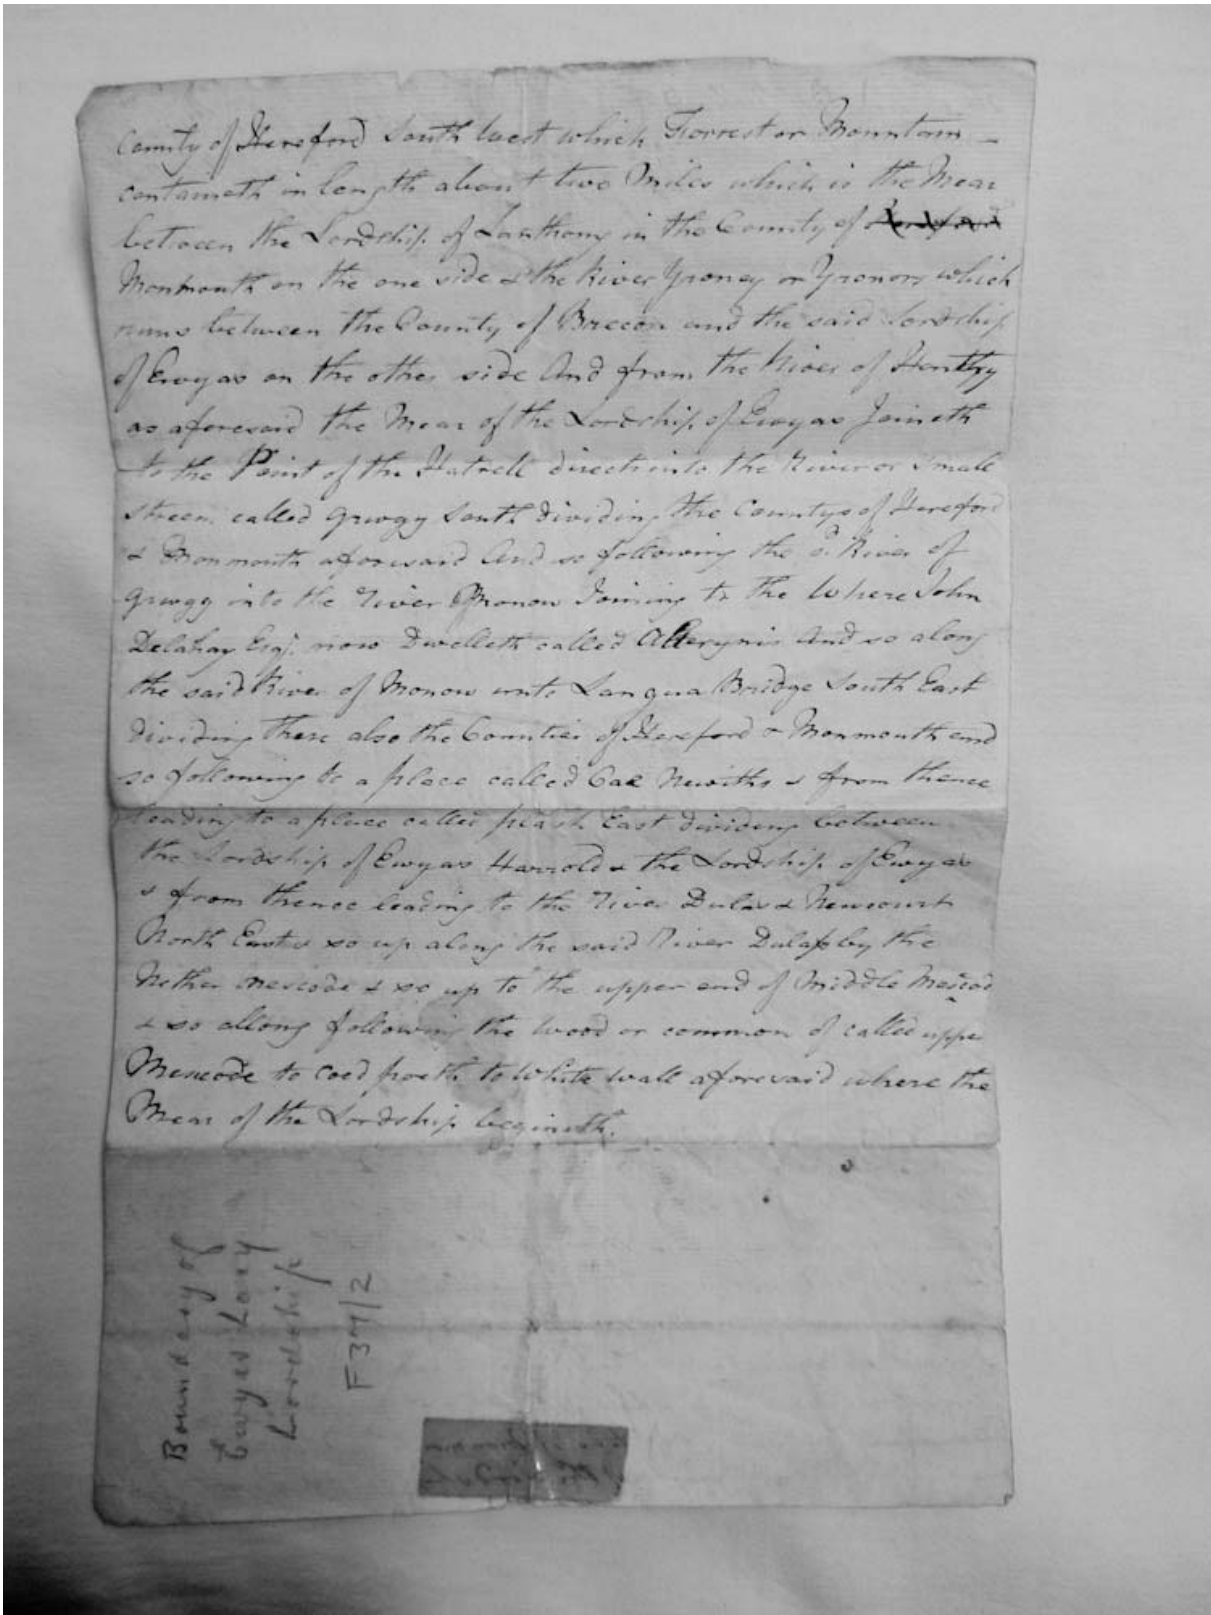 County of Hereford South West which Forrest or Mountain
containeth in length about two Miles which is the Mear
between the Lordship of Lanthony in the County of Hereford
Monmouth on the one side & the River Groney or Gronow which
runs between the County of Brecon and the said Lordship
of Ewyas on the other side And from the River of Honthy
as aforesaid the Mear of the Lordship of Ewyas Joineth
to the Point of the Hatrell direct into the River or Smale
streem called Grwgy South dividing the Countys of Hereford
& Monmouth aforesaid And so following the sd. River of
Grwgg into the River Monow Joining to the Where John
Delahay Esqr. now Dwelleth called Allterynis And so along
the said River of Monow unto Langua Bridge South East
dividing there also the Counties of Hereford & Monmouth and
so following to a place called Cae Newiths & from thence
leading to a place called plash East dividing between
the Lordship of Ewyas Harrold & the Lordship of Ewyas
& from thence leading to the River Dulas & Newcourt
North East & so up along the said River Dulass by the
Nether Mescode & so up to the upper end of Middle Mescod
& so allong following the Wood or common of called upper
Mencode to Coed poeth to White Wall aforesaid where the
Mear of the Lordship beginith.
Boundary of
Ewyas Lacy
Lordship
F37/2